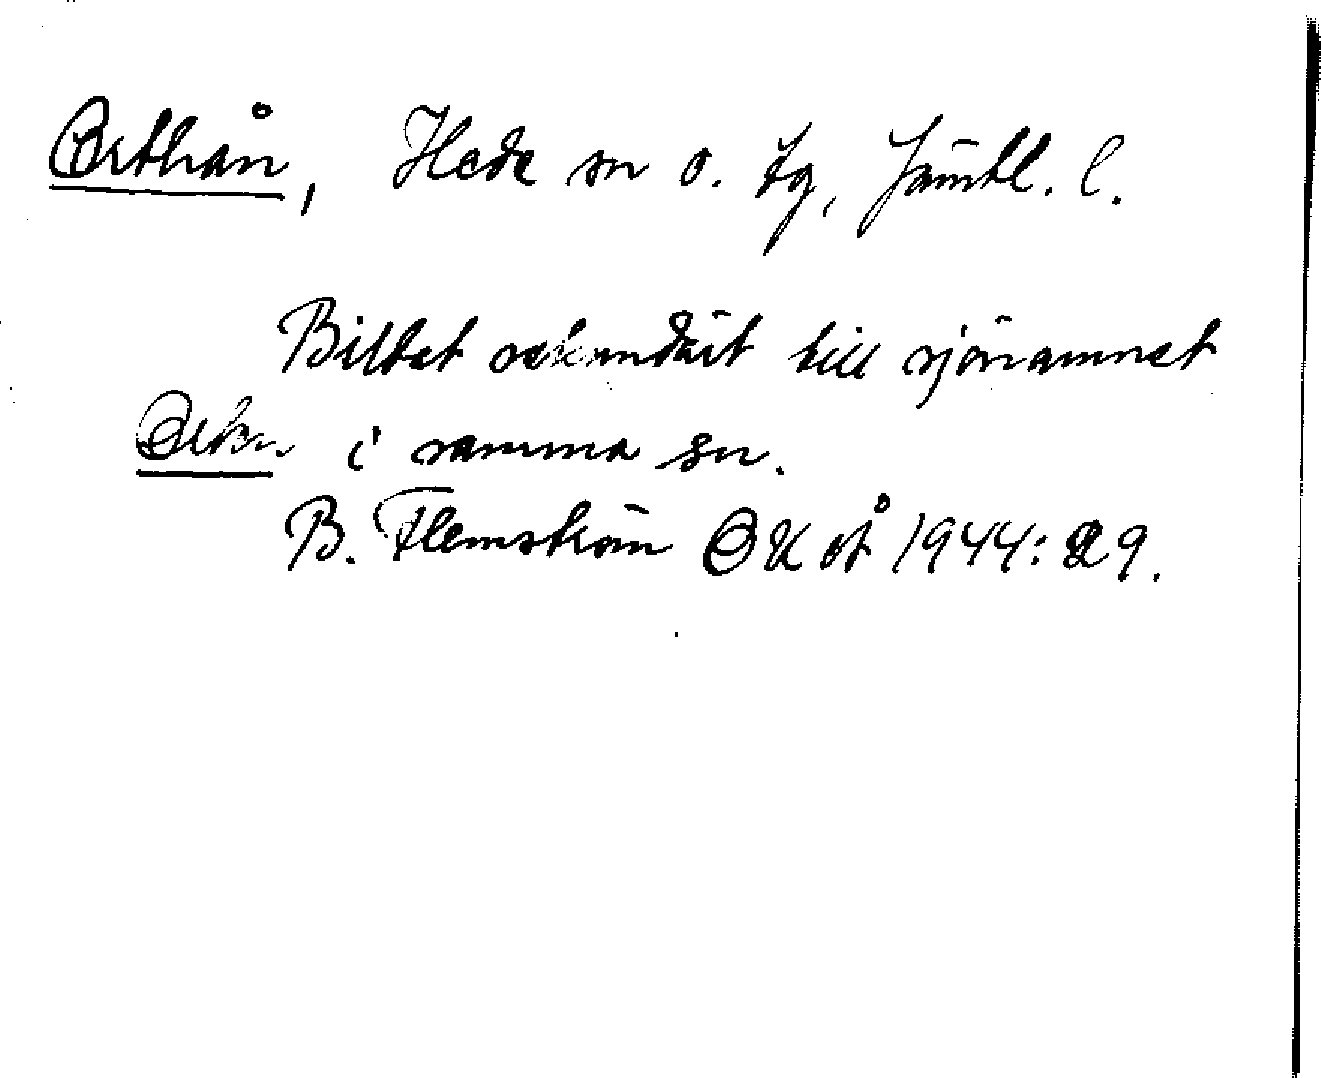 Orthån, Hede sn o. tg, Jämtl. l.
Bildat sekundärt till sjönamnet
Orten i samma sn.
B. Flemström 1944: 29.